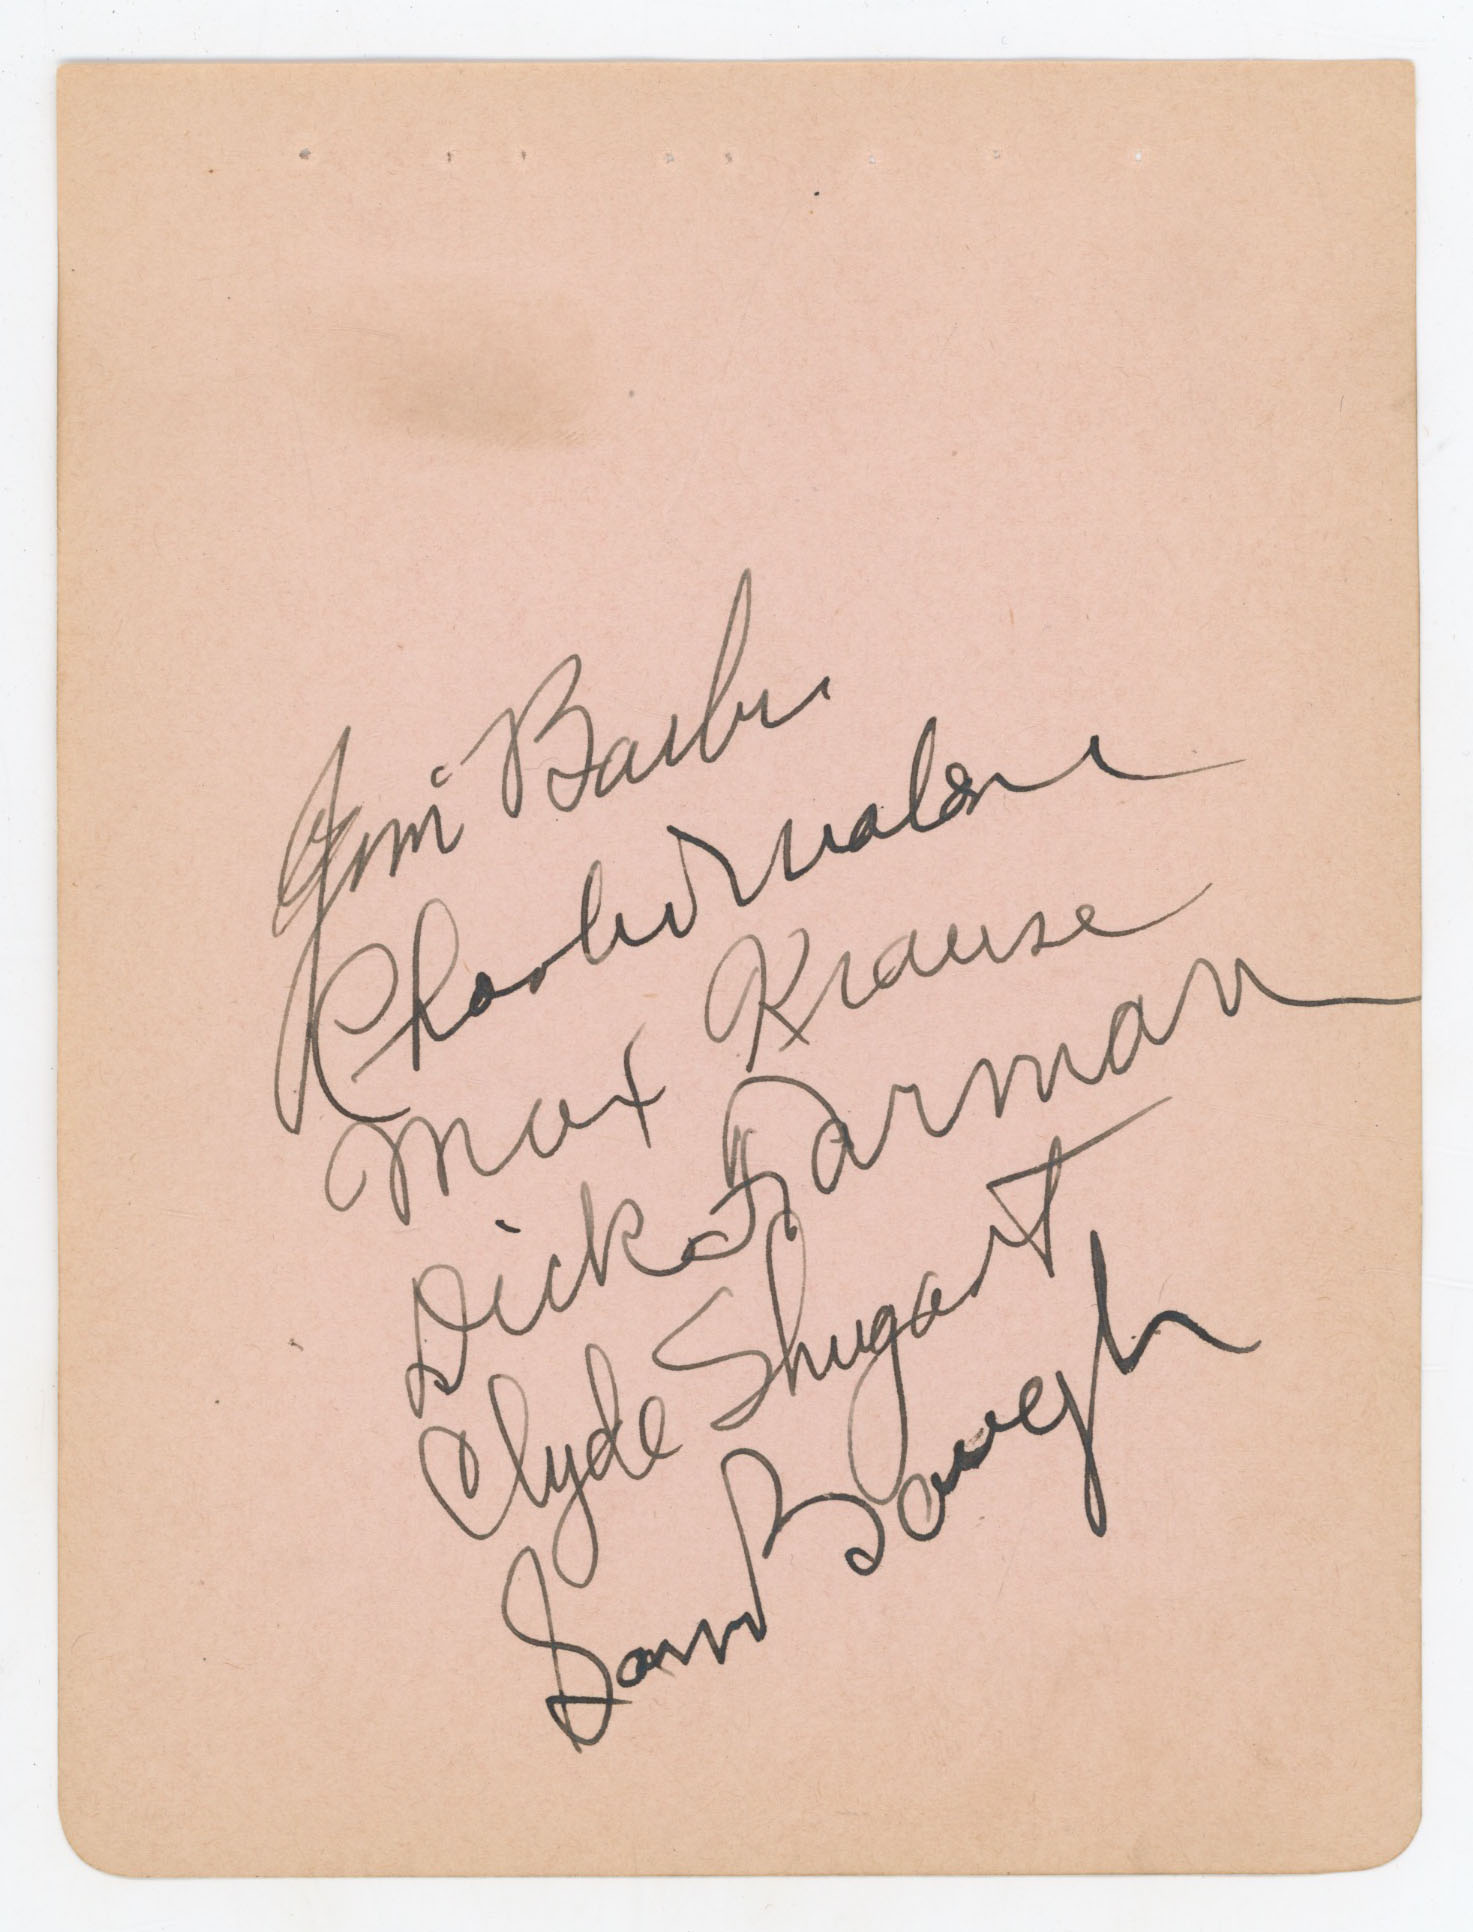 Jim Barber
Charley Malone
Max Krause
Dick Farman
Clyde Shugart
Sam Baugh